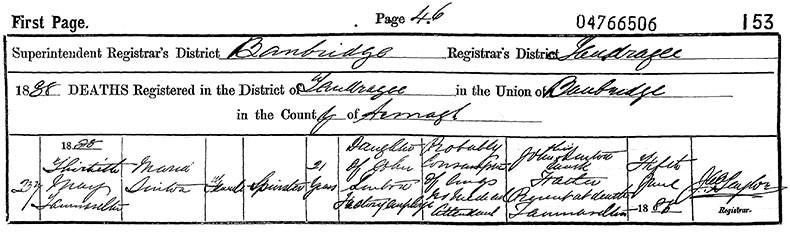 First Page.
Page 46
04766506
153
Superintendent Registrar's District Banbridge
Registrar's District Tandragee
1888 DEATHS Registered in the District of Tandragee in the Union of Banbridge
in the County of Armagh
1888
Thirtieth
May
Maria
Sinton
Female
Spinster
21
Years
Daughter
of John
Sinton
Factory employe
Probably
Consumption
of lungs
No Medical
Attendant
John Sinton
his
mark
Father
Present at death
Fifth
June
1888
Registrar.